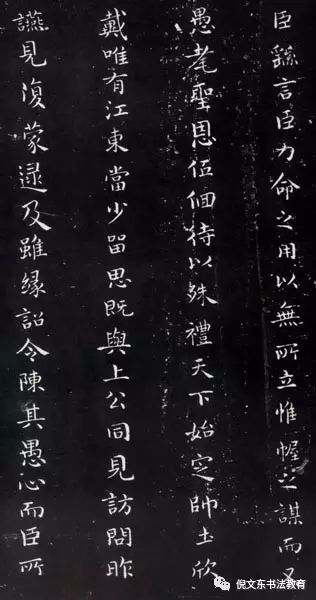 臣繇言臣力命之用以無所立惟幄之謀而又
愚耄聖恩低佪待以殊禮天下始定帥土欣
戴唯有江東當少留思既與上公同見訪問昨
讌見復蒙逮及雖緣詔令陳其愚心而臣所
倪文东书法教育